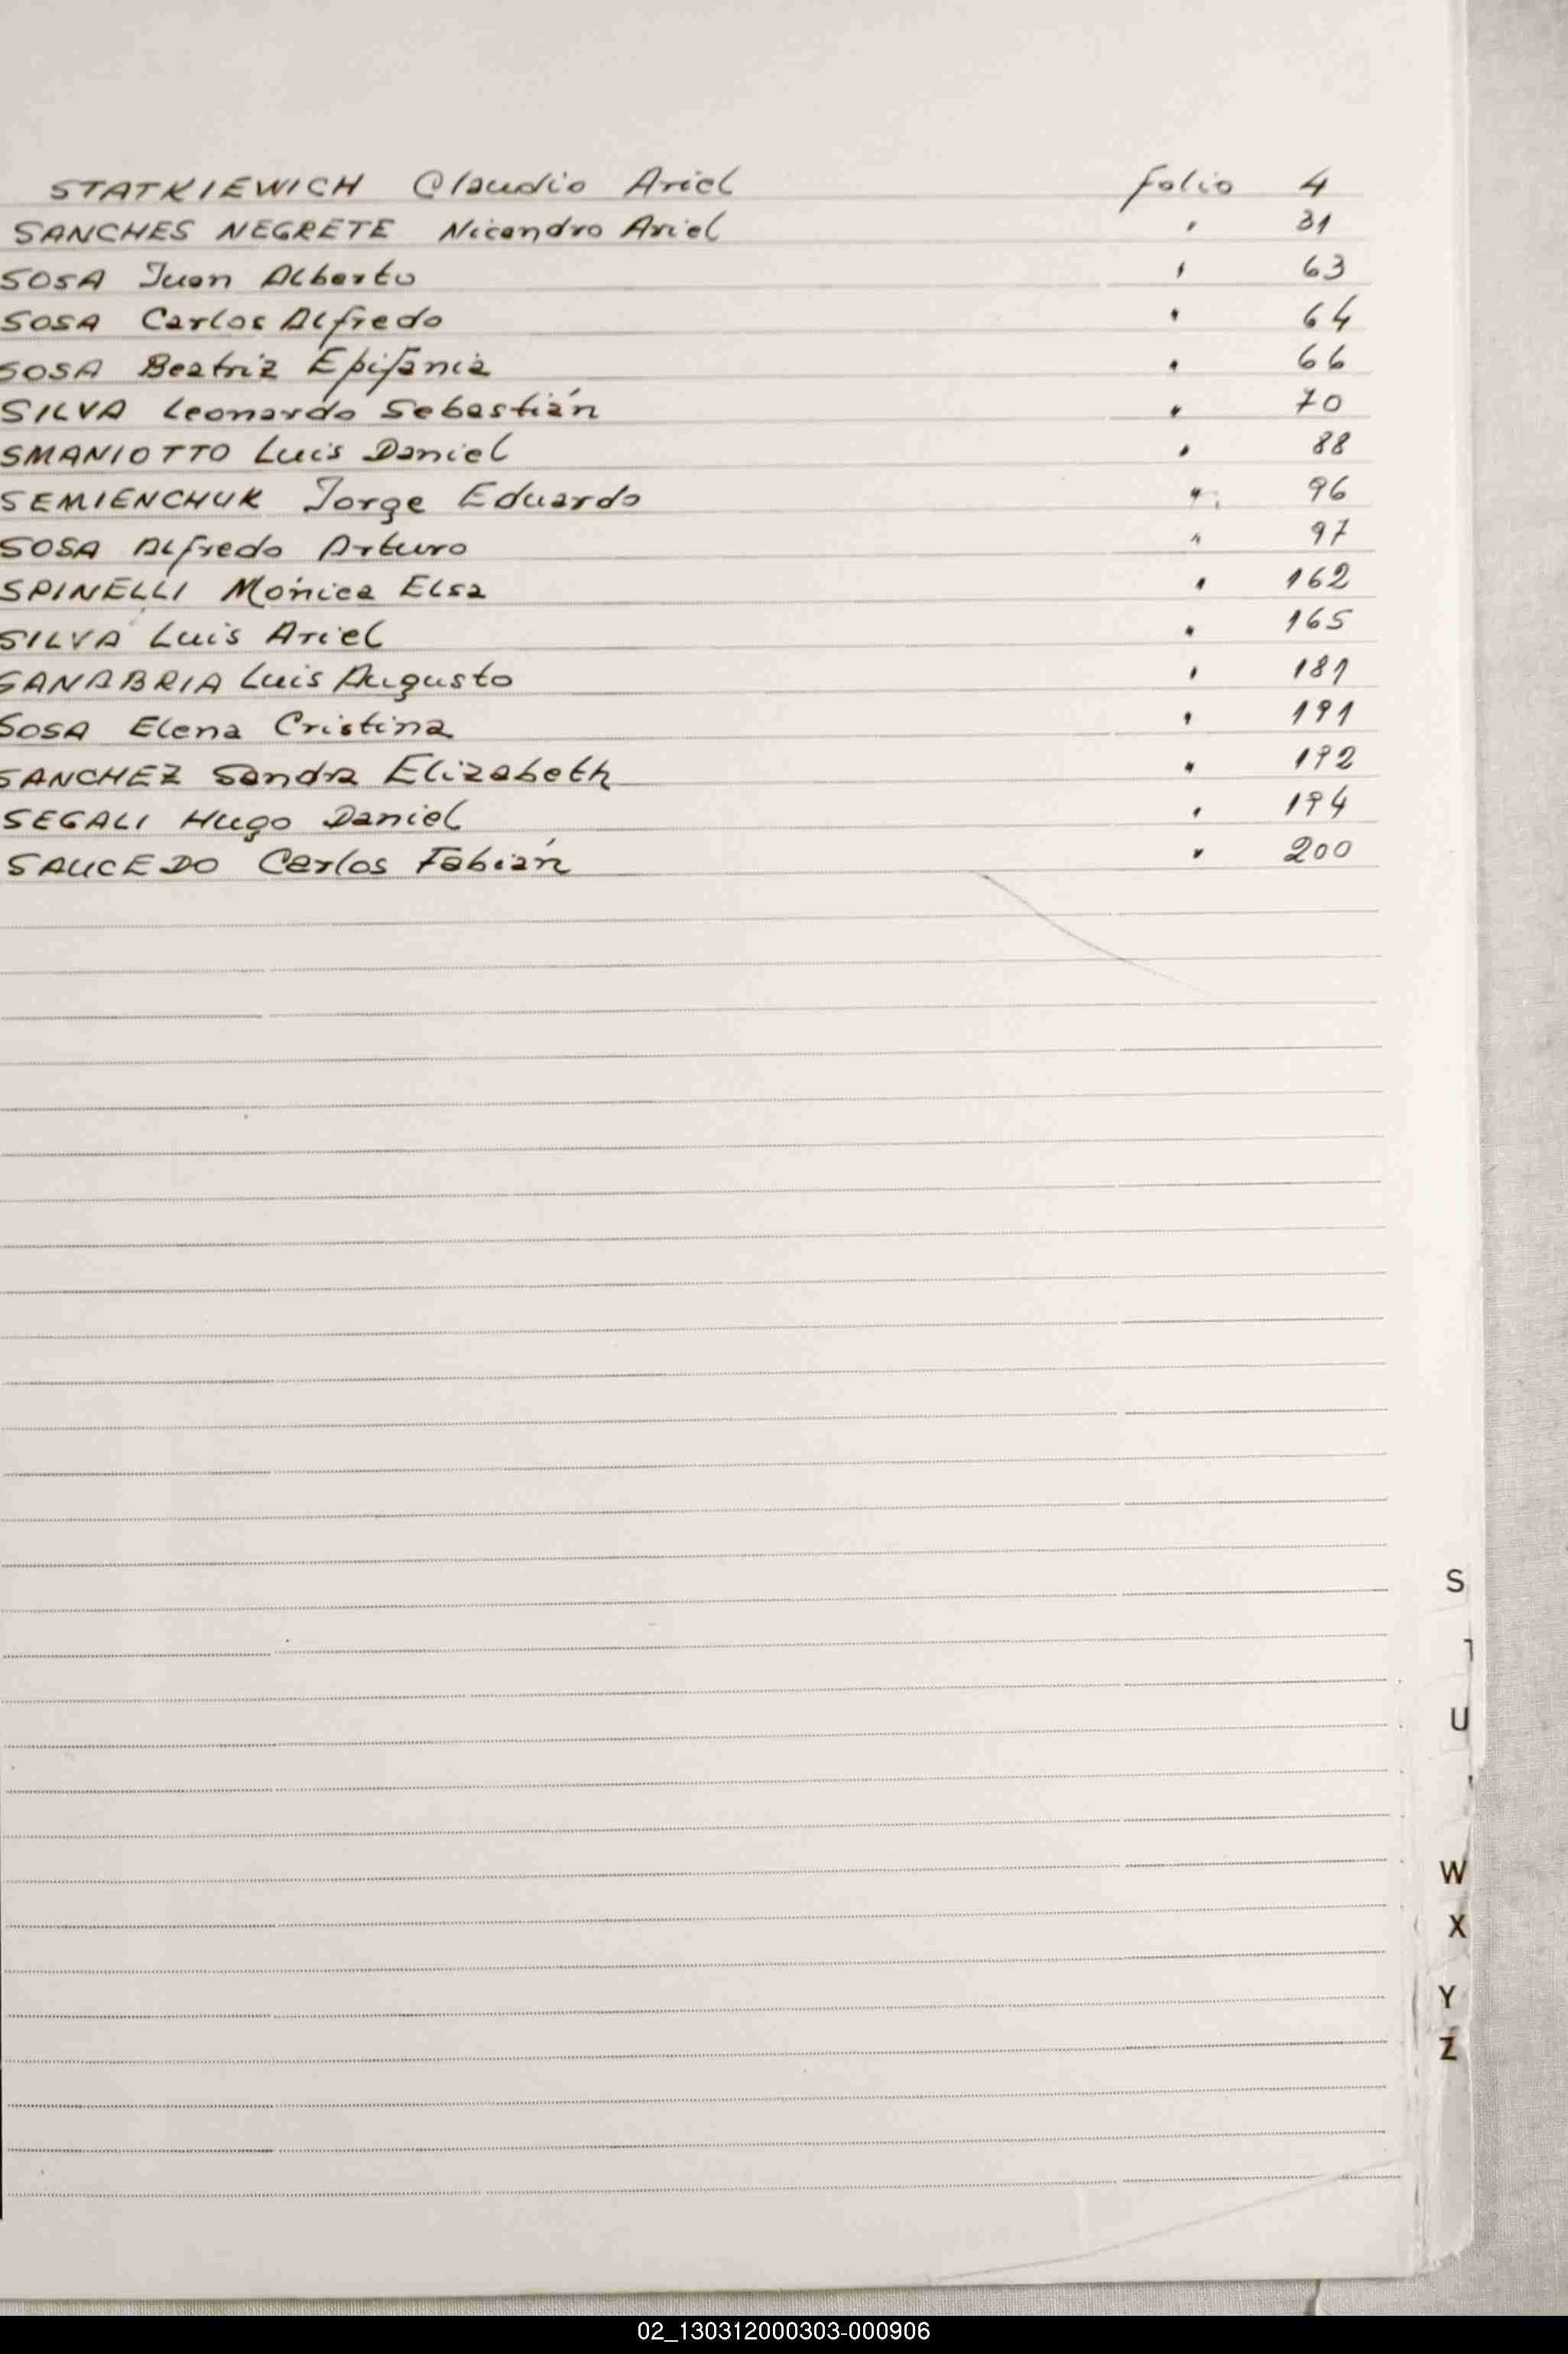 STATKIEWICH Claudio Ariel folio 4
SANCHES NEGRETE Nicandro Ariel " 31
SOSA Juan Alberto " 63
SOSA Carlos Alfredo " 64
SOSA Beatriz Epifania " 66
SILVA Leonardo Sebastián " 70
SMANIOTTO Luis Daniel " 88
SEMIENCHUK Jorge Eduardo " 96
SOSA Alfredo Arturo " 97
SPINELLI Mónica Elsa " 162
SILVA Luis Ariel " 165
SANABRIA Luis Augusto " 181
SOSA Elena Cristina " 191
SANCHEZ Sandra Elizabeth " 192
SEGALI Hugo Daniel " 194
SAUCEDO Carlos Fabián " 200
S
U
W
X
Y
Z
02_130312000303-000906